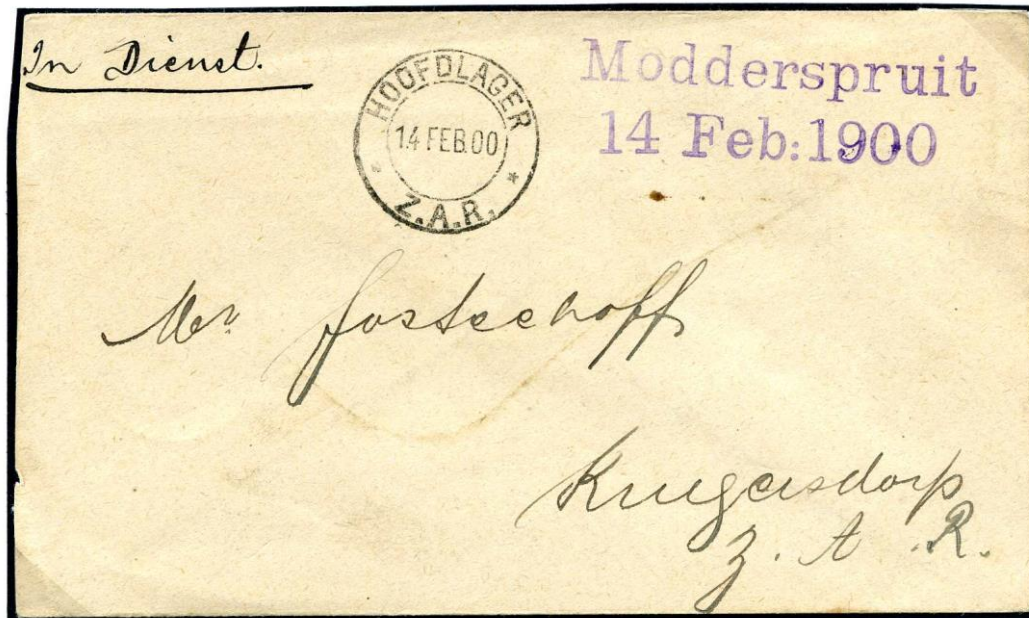 In Dienst.
HOOFDLAGER
14 FEB.00
Z.A.R.
Modderspruit
14 Feb:1900
Mr
Krugersdorp
Z. A. R.